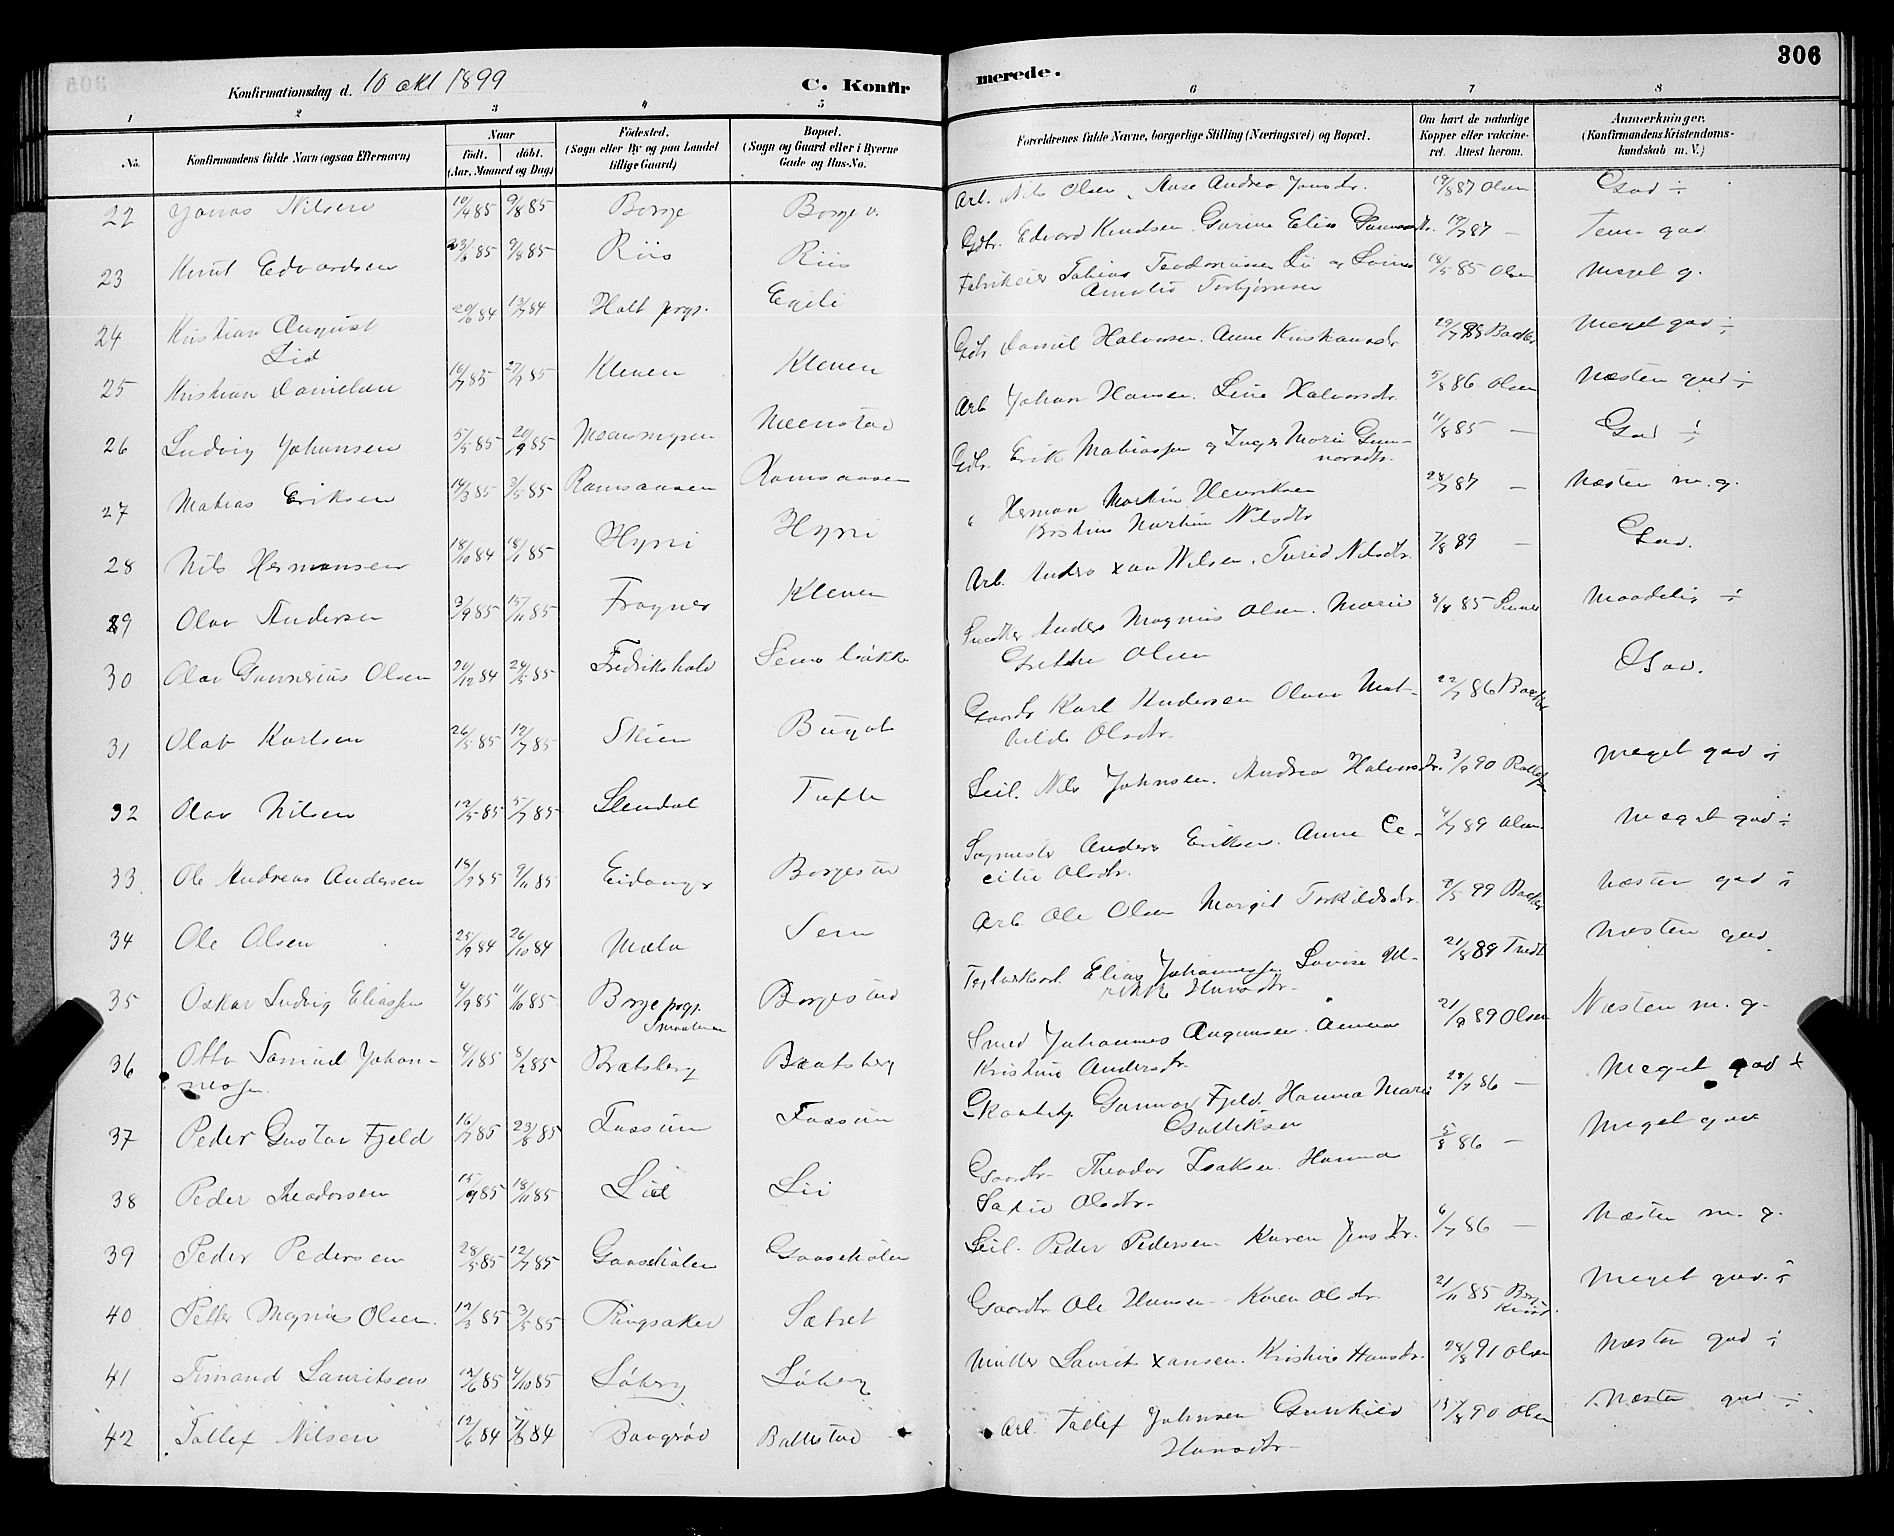 306
Konfirmationsdag d. 10 okt 1899 C. Konfirmerede.
1 2 3 4 5 6 7 8
No. Konfirmandens fulde Navn (ogsaa Efternavn) Naar födt. döbt. (Aar, Maaned og Dag) Födested. (Sogn eller By og paa Landet tillige Gaard) Bopæl. (Sogn og Gaard eller i Byerne Gade og Hus-No. Forældrenes fulde Navne, borgerlige Stilling (Næringsvei) og Bopæl. Om havt de naturlige Kopper eller vaccineret. Attest herom. Anmærkninger. (Konfirmandens Kristendomskundskab m. V.)
22 Jonas Nilsen 10/4 85 9/8 85 Borge Borge Arb. Nils Olsen, Aase Andrea Jonsdr. 19/8 87 Olsen God ÷
23 Knut Edvardsen 23/6 85 9/8 85 Riis Riis Gdbr. Edvard Knudsen. 19/7 87 — Tem. god
24 Kristian August Lid 20/6 84 13/7 84 Holt prgj. Fabrikeier Tobias 18/5 85 Olsen Meget g.
25 Kristian Danielsen 16/7 85 27/9 85 Kleven Kleven Gdb Daniel Halvorsen. Anne Kristiansdr Meget god ÷
26 Ludvig Johansen 5/5 85 20/9 85 Meensmyren Meenstad Arb Johan Hansen. Line Halvorsdr. 5/8 86 Olsen Næsten god ÷
27 Matias Eriksen 14/3 85 3/5 85 Ramsaasen Ramsaasen Gdb. Erik Mathiassen og Inger Marie Gunnarsdtr. 11/8 85 — God ÷
28 Nils Hermansen 18/10 84 18/1 85 Hyni Hyni " Herman Martin Henriksen Kristine Martine Nilsdtr 28/7 87 — Næsten m. g.
29 Olav Andersen 3/9 85 15/11 85 Frogner Kleven Arb. Anders Nilsen. Turid Nilsdtr. 7/8 89 — God.
30 Olav Gunnerius Olsen 20/12 84 24/5 85 Fredrikshald Snedker Anders Magnus Olsen. Marie Grethe Olsen 8/8 85 Maadelig ÷
31 Olav Karlsen 26/5 85 12/7 85 Skien Gaardb Karl Andersen Olava Mathilde Olsdtr. 22/7 86 Backer God.
32 Olav Nilsen 12/5 85 5/7 85 Slemdal Tufte Seil. Nils Johnsen. Andrea Halvorsdtr. 3/9 90 Meget god ÷
33 Ole Andreas Andersen 18/7 85 9/11 85 Eidanger Borgestad Sagmester Anders Eriksen. Anne Cecilie Olsdtr. 4/7 89 Olsen Meget god ÷
34 Ole Olsen 25/9 84 26/10 84 Mæla Sem Arb Ole Olsen Margit Torkildsdtr. 9/5 99 Backer Næsten god ÷
35 Oskar Ludvig Eliassen 4/9 85 11/10 85 Borge prgj. Smaalenene Borgestad Elias Johannessen Lovise Hansdtr. 21/8 89 Næsten god
36 Otto Samuel Johannessen 4/1 85 8/2 85 Bratsberg Bratsberg Smed Johannes Anna Kristine Andersdtr. 21/9 89 Olsen Næsten m. g.
37 Peder Gustav Fjeld 16/7 85 23/8 85 Fossum Fossum Gunnar Fjeld. Hanna Marie Gulliksen 28/7 86 — Meget god ÷
38 Peder Theodorsen 15/9 85 18/10 85 Lid Lii Gaardbr. Theodor Isaksen. Hanna Sofie Olsdtr. 5/8 86 — Meget god
39 Peder Pedersen 28/5 85 12/7 85 Gaaseholen Gaaseholen Seil. Peder Pedersen Karen Jensdtr. 6/7 86 — Næsten m. g.
40 Petter Magnus Olsen. 12/3 85 3/5 85 Ringsaker Sætret Gaardbr Ole Hansen — Karen Olsdtr. 21/11 85 Meget god. ÷
41 Timand Lauritsen 12/6 85 4/10 85 Løberg Løberg Møller Laurits Hansen. Kristine Hansdtr. 24/8 91 Olsen Næsten god ÷
42 Tollef Nilsen 12/6 84 7/8 84 Baugrød Ballestad Arb. Tollef Johnsen Gunhild Hansdtr 13/8 90 Olsen Næsten god ÷